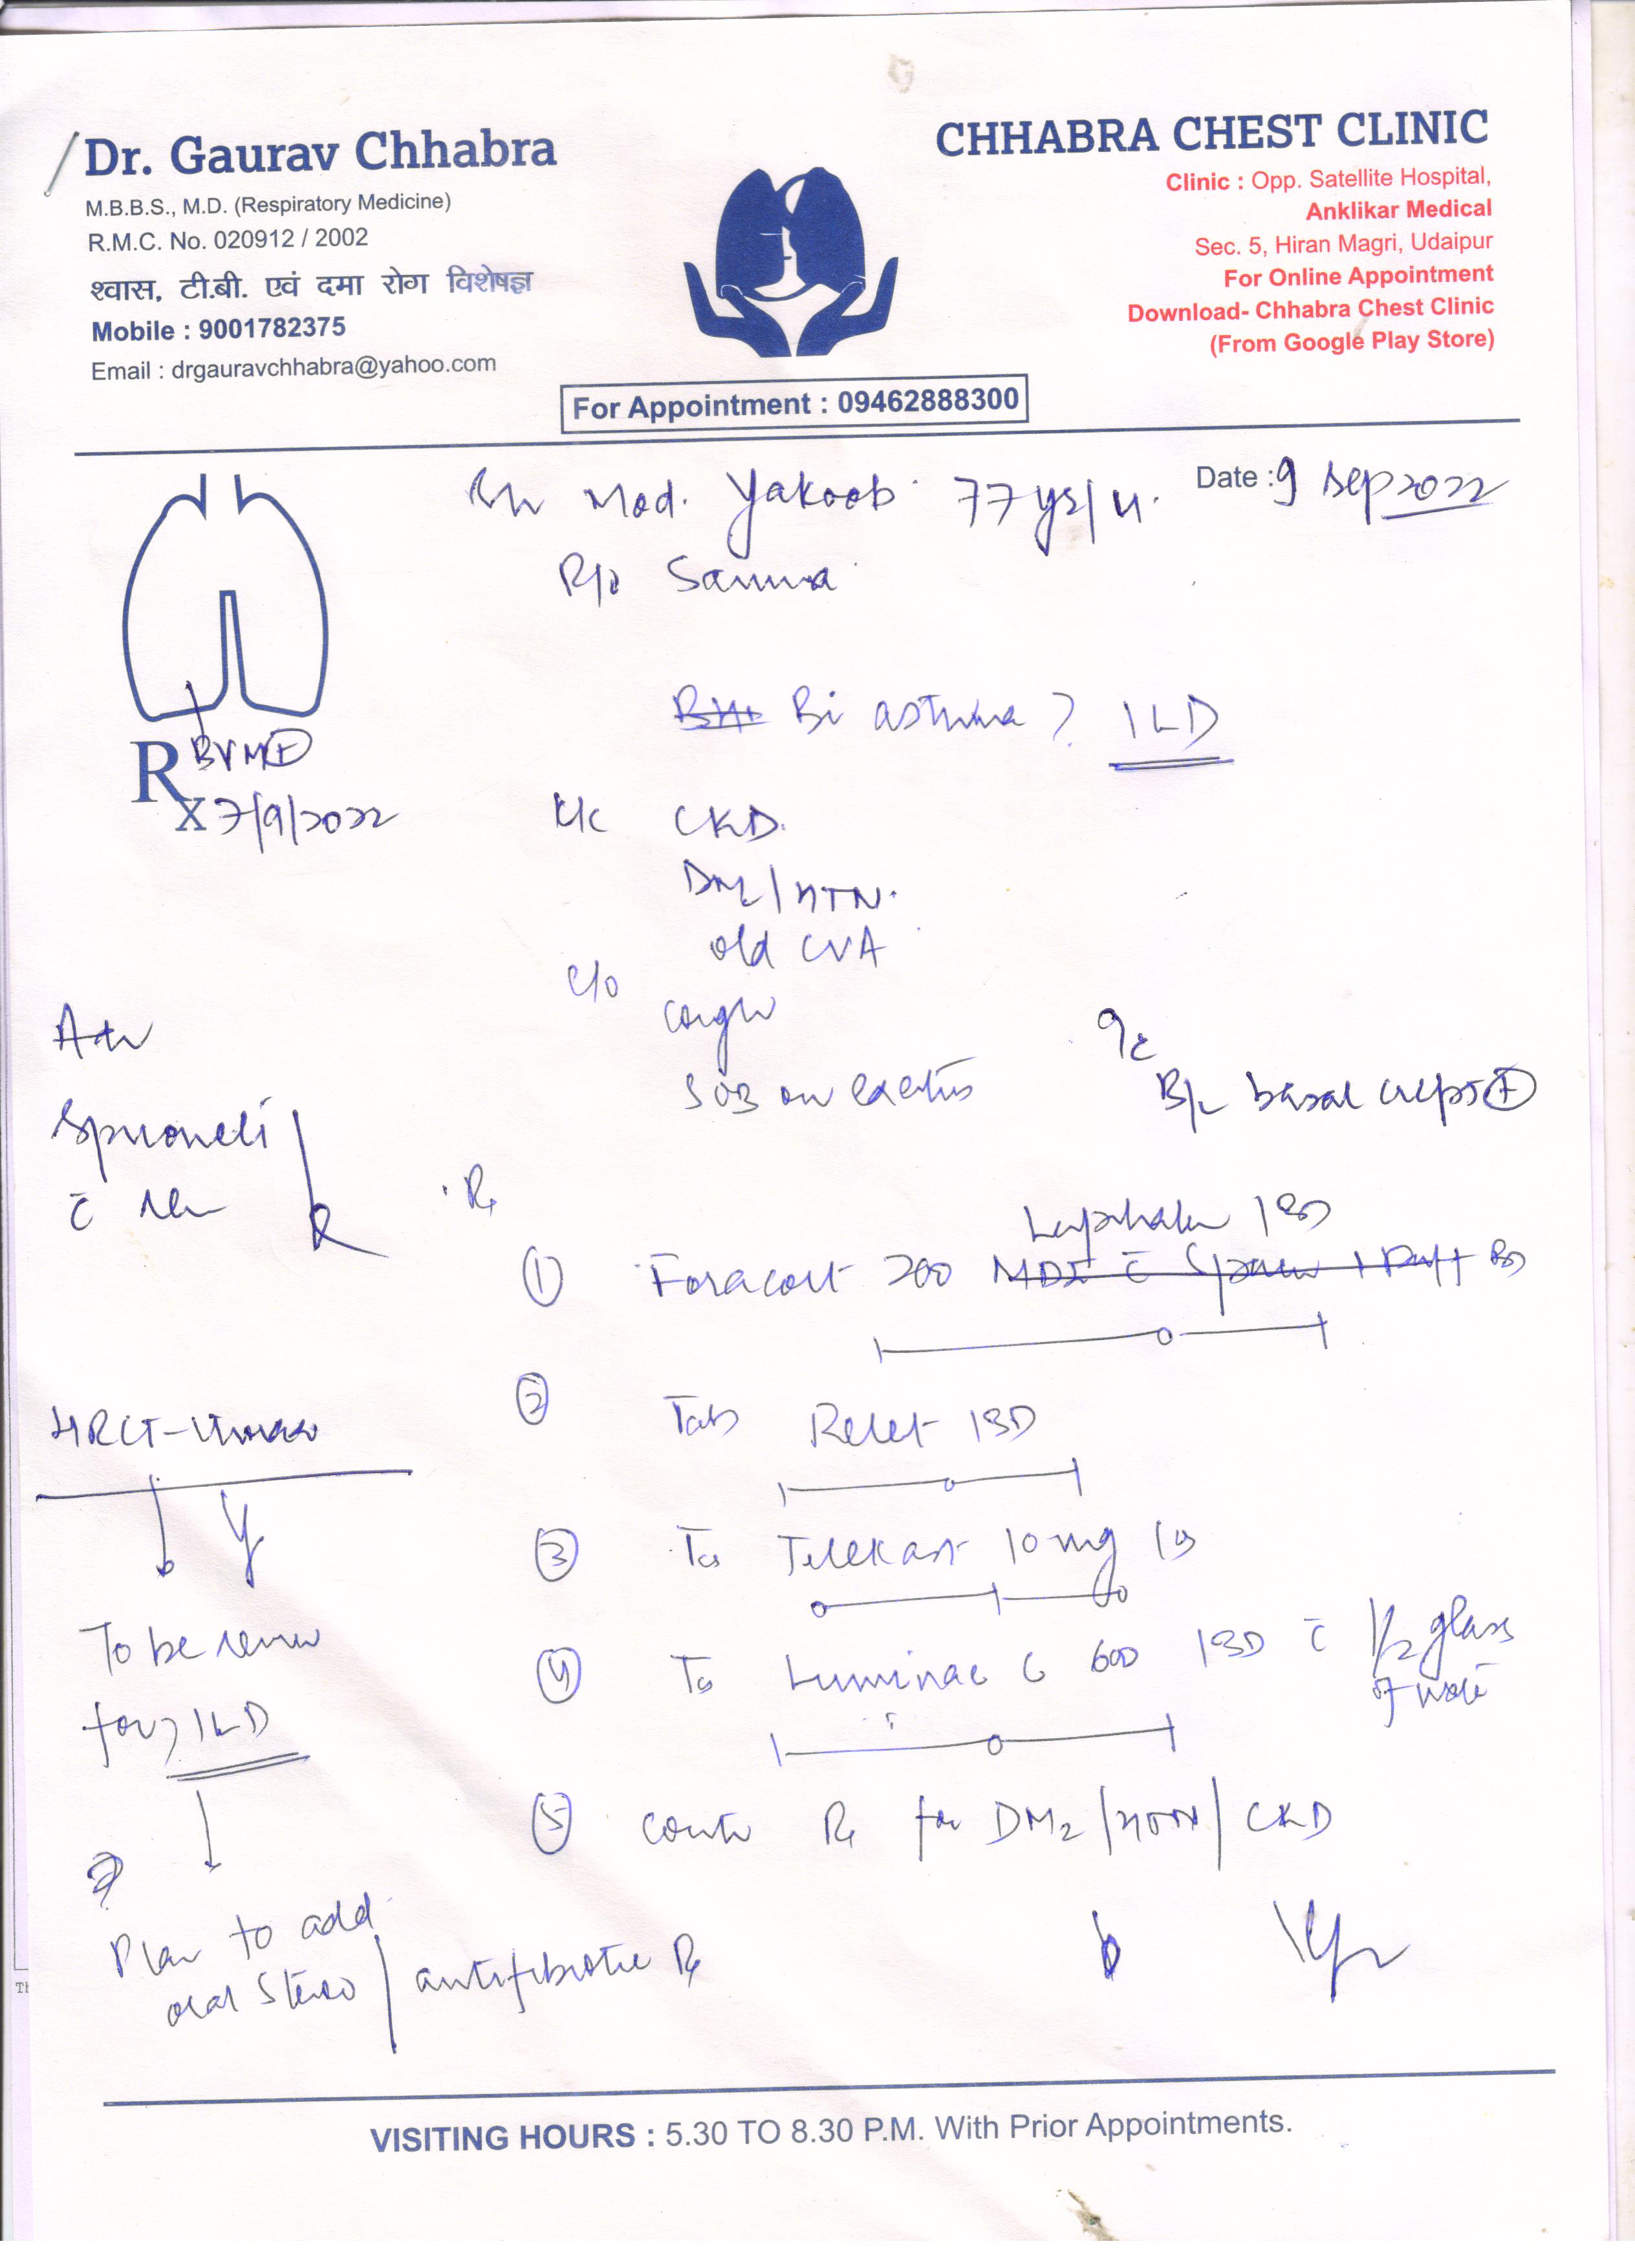 Dr. Gaurav Chhabra
M.B.B.S., M.D. (Respiratory Medicine)
R.M.C. No. 020912 / 2002
श्वास, टी.बी. एवं दमा रोग विशेषज्ञ
Mobile : 9001782375
Email : drgauravchhabra@yahoo.com
CHHABRA CHEST CLINIC
Clinic : Opp. Satellite Hospital,
Anklikar Medical
Sec. 5, Hiran Magri, Udaipur
For Online Appointment
Download- Chhabra Chest Clinic
(From Google Play Store)
For Appointment : 09462888300
Mod. Yakoob 77 ys/M.
Date : 9 Sep 2022
R/o
Br asthma ? ILD
Rx
7/9/2022
K/c CKD.
DM2/HTN.
old CVA
c/o cough
SOB on
B/L basal creps +
Adv
Rx
1 Foracort 200 MDI c 1 Puff BD
1 BD
2 Tab 1 BD
HRCT-Thorax
3 Telekast 10 mg
To be
for ? ILD
4 Luminac C 600 1 BD c 1/2 glass
of
5 Rx for DM2/HTN/CKD
Plan to add
oral / antifibrotic Rx
VISITING HOURS : 5.30 TO 8.30 P.M. With Prior Appointments.